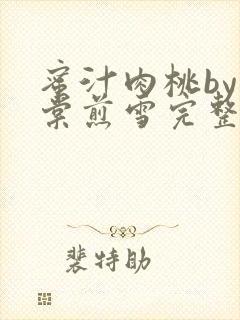 蜜汁肉桃by
棠煎雪完整
裴特助